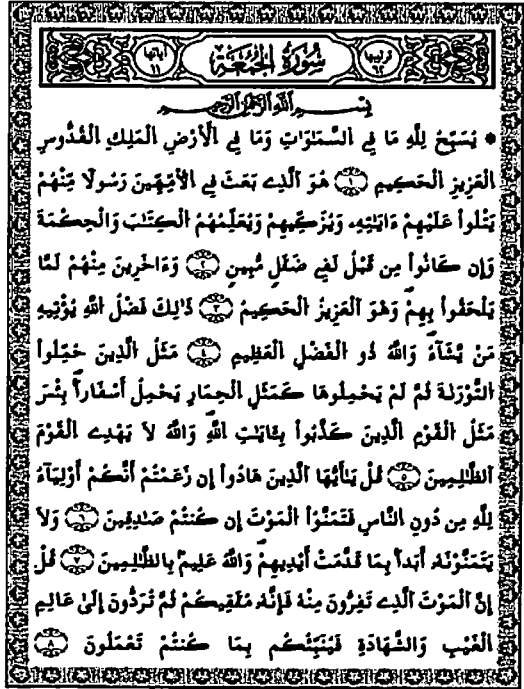 ترتيبها ٦٢ سُورَةُ الجُمُعَةِ آياتها ١١
بِسْمِ اللَّهِ الرَّحْمَٰنِ الرَّحِيمِ
* يُسَبِّحُ لِلَّهِ مَا فِي السَّمَاوَاتِ وَمَا فِي الْأَرْضِ الْمَلِكِ الْقُدُّوسِ
الْعَزِيزِ الْحَكِيمِ ١ هُوَ الَّذِي بَعَثَ فِي الْأُمِّيِّينَ رَسُولًا مِّنْهُمْ
يَتْلُوا۟ عَلَيْهِمْ ءَايَاتِهِۦ وَيُزَكِّيهِمْ وَيُعَلِّمُهُمُ الْكِتَابَ وَالْحِكْمَةَ
وَإِن كَانُوا۟ مِن قَبْلُ لَفِي ضَلَٰلٍ مُّبِينٍ ٢ وَءَاخَرِينَ مِنْهُمْ لَمَّا
يَلْحَقُوا۟ بِهِمْ وَهُوَ الْعَزِيزُ الْحَكِيمُ ٣ ذَٰلِكَ فَضْلُ اللَّهِ يُؤْتِيهِ
مَنْ يَّشَآءُ وَاللَّهُ ذُو الْفَضْلِ الْعَظِيمِ ٤ مَثَلُ الَّذِينَ حُمِّلُوا۟
التَّوْرَىٰةَ ثُمَّ لَمْ يَحْمِلُوهَا كَمَثَلِ الْحِمَارِ يَحْمِلُ أَسْفَارًا بِئْسَ
مَثَلُ الْقَوْمِ الَّذِينَ كَذَّبُوا۟ بِـَٔايَاتِ اللَّهِ وَاللَّهُ لَا يَهْدِي الْقَوْمَ
الظَّٰلِمِينَ ٥ قُلْ يَٰٓأَيُّهَا الَّذِينَ هَادُوا۟ إِن زَعَمْتُمْ أَنَّكُمْ أَوْلِيَآءُ
لِلَّهِ مِن دُونِ النَّاسِ فَتَمَنَّوُا۟ الْمَوْتَ إِن كُنتُمْ صَادِقِينَ ٦ وَلَا
يَتَمَنَّوْنَهُۥ أَبَدًا بِمَا قَدَّمَتْ أَيْدِيهِمْ وَاللَّهُ عَلِيمٌ بِالظَّٰلِمِينَ ٧ قُلْ
إِنَّ الْمَوْتَ الَّذِي تَفِرُّونَ مِنْهُ فَإِنَّهُۥ مُلَٰقِيكُمْ ثُمَّ تُرَدُّونَ إِلَىٰ عَالِمِ
الْغَيْبِ وَالشَّهَادَةِ فَيُنَبِّئُكُم بِمَا كُنتُمْ تَعْمَلُونَ ٨